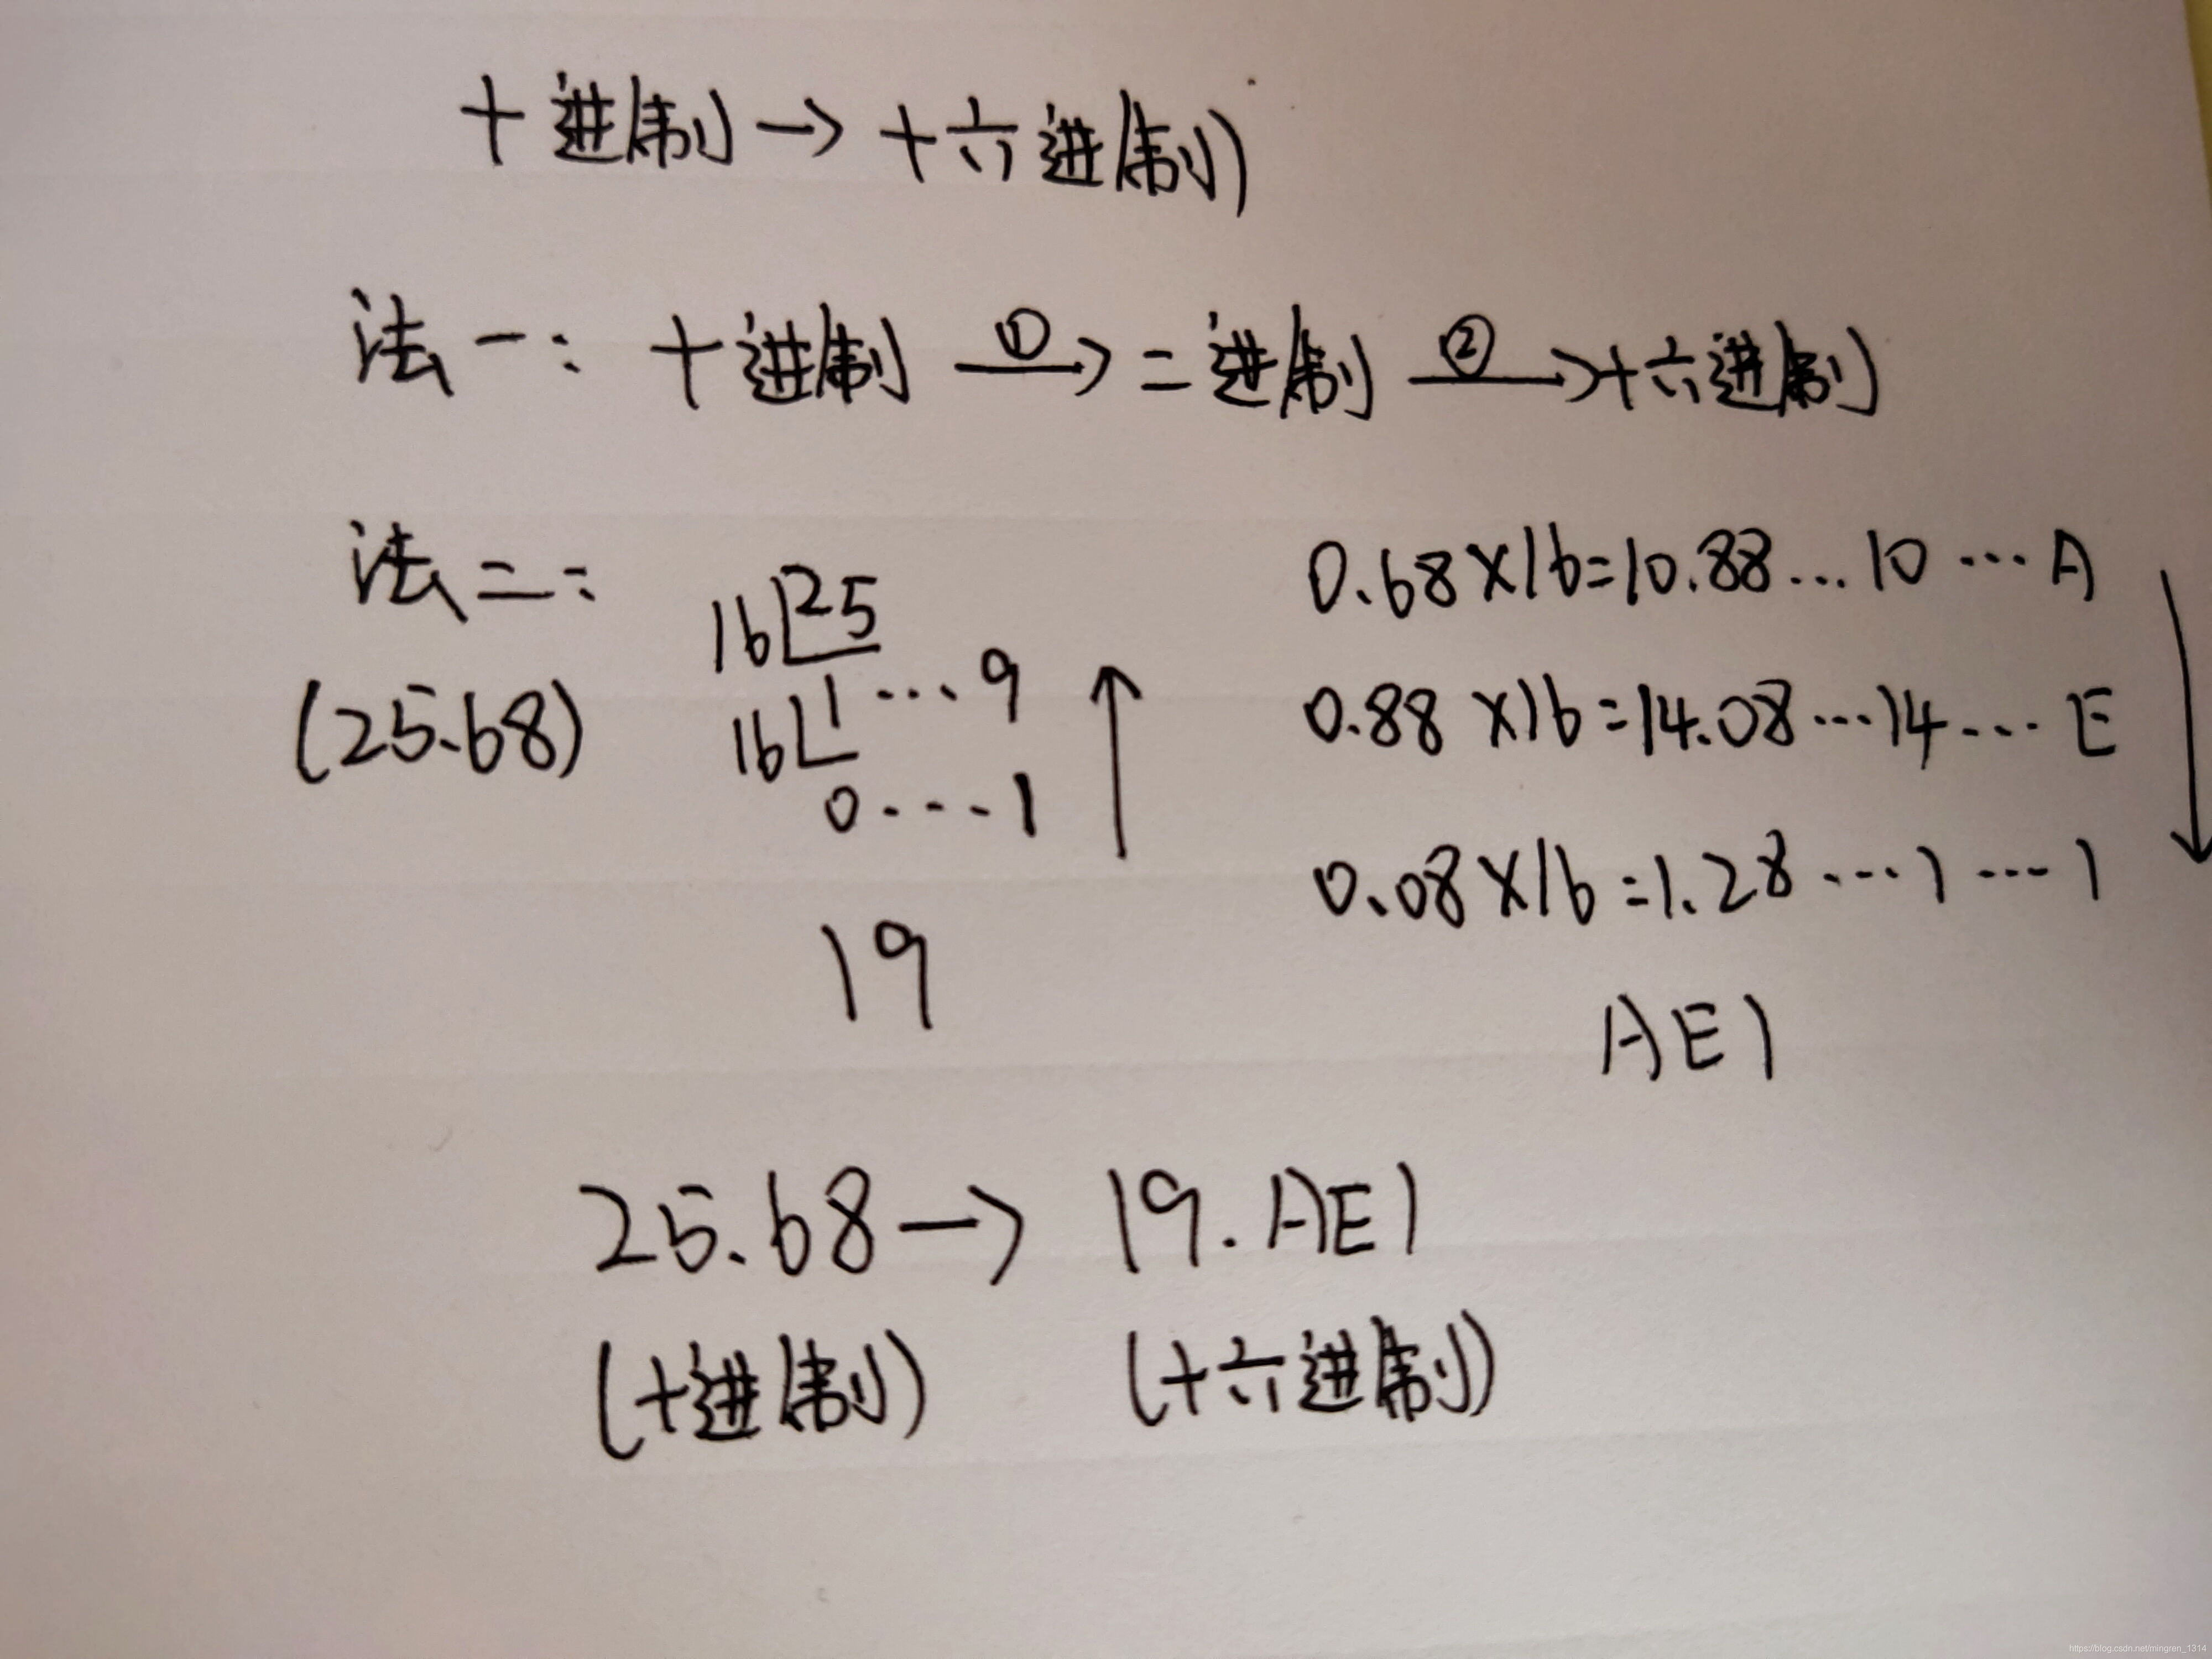 十进制→十六进制
法一：十进制 ①→ 二进制 ②→ 十六进制
法二：
(25.68)
16 25
16 1 ... 9
0 ... 1
19
0.68×16=10.88...10...A
0.88×16=14.08...14...E
0.08×16=1.28...1...1
AE1
25.68→19.AE1
(十进制) (十六进制)
https://blog.csdn.net/mingren_1314